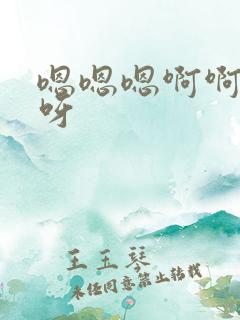 嗯嗯嗯啊啊
呀
王玉琴
未经同意禁止转载